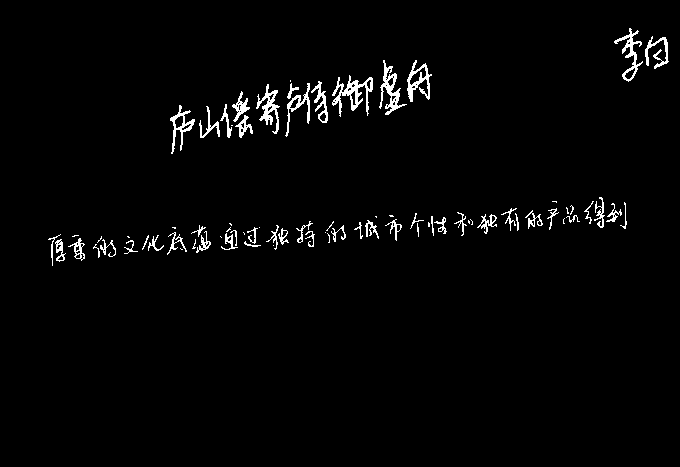 庐山谣寄卢侍御虚舟
李白
厚重的文化底蕴通过独特的城市个性和独有的产品得到